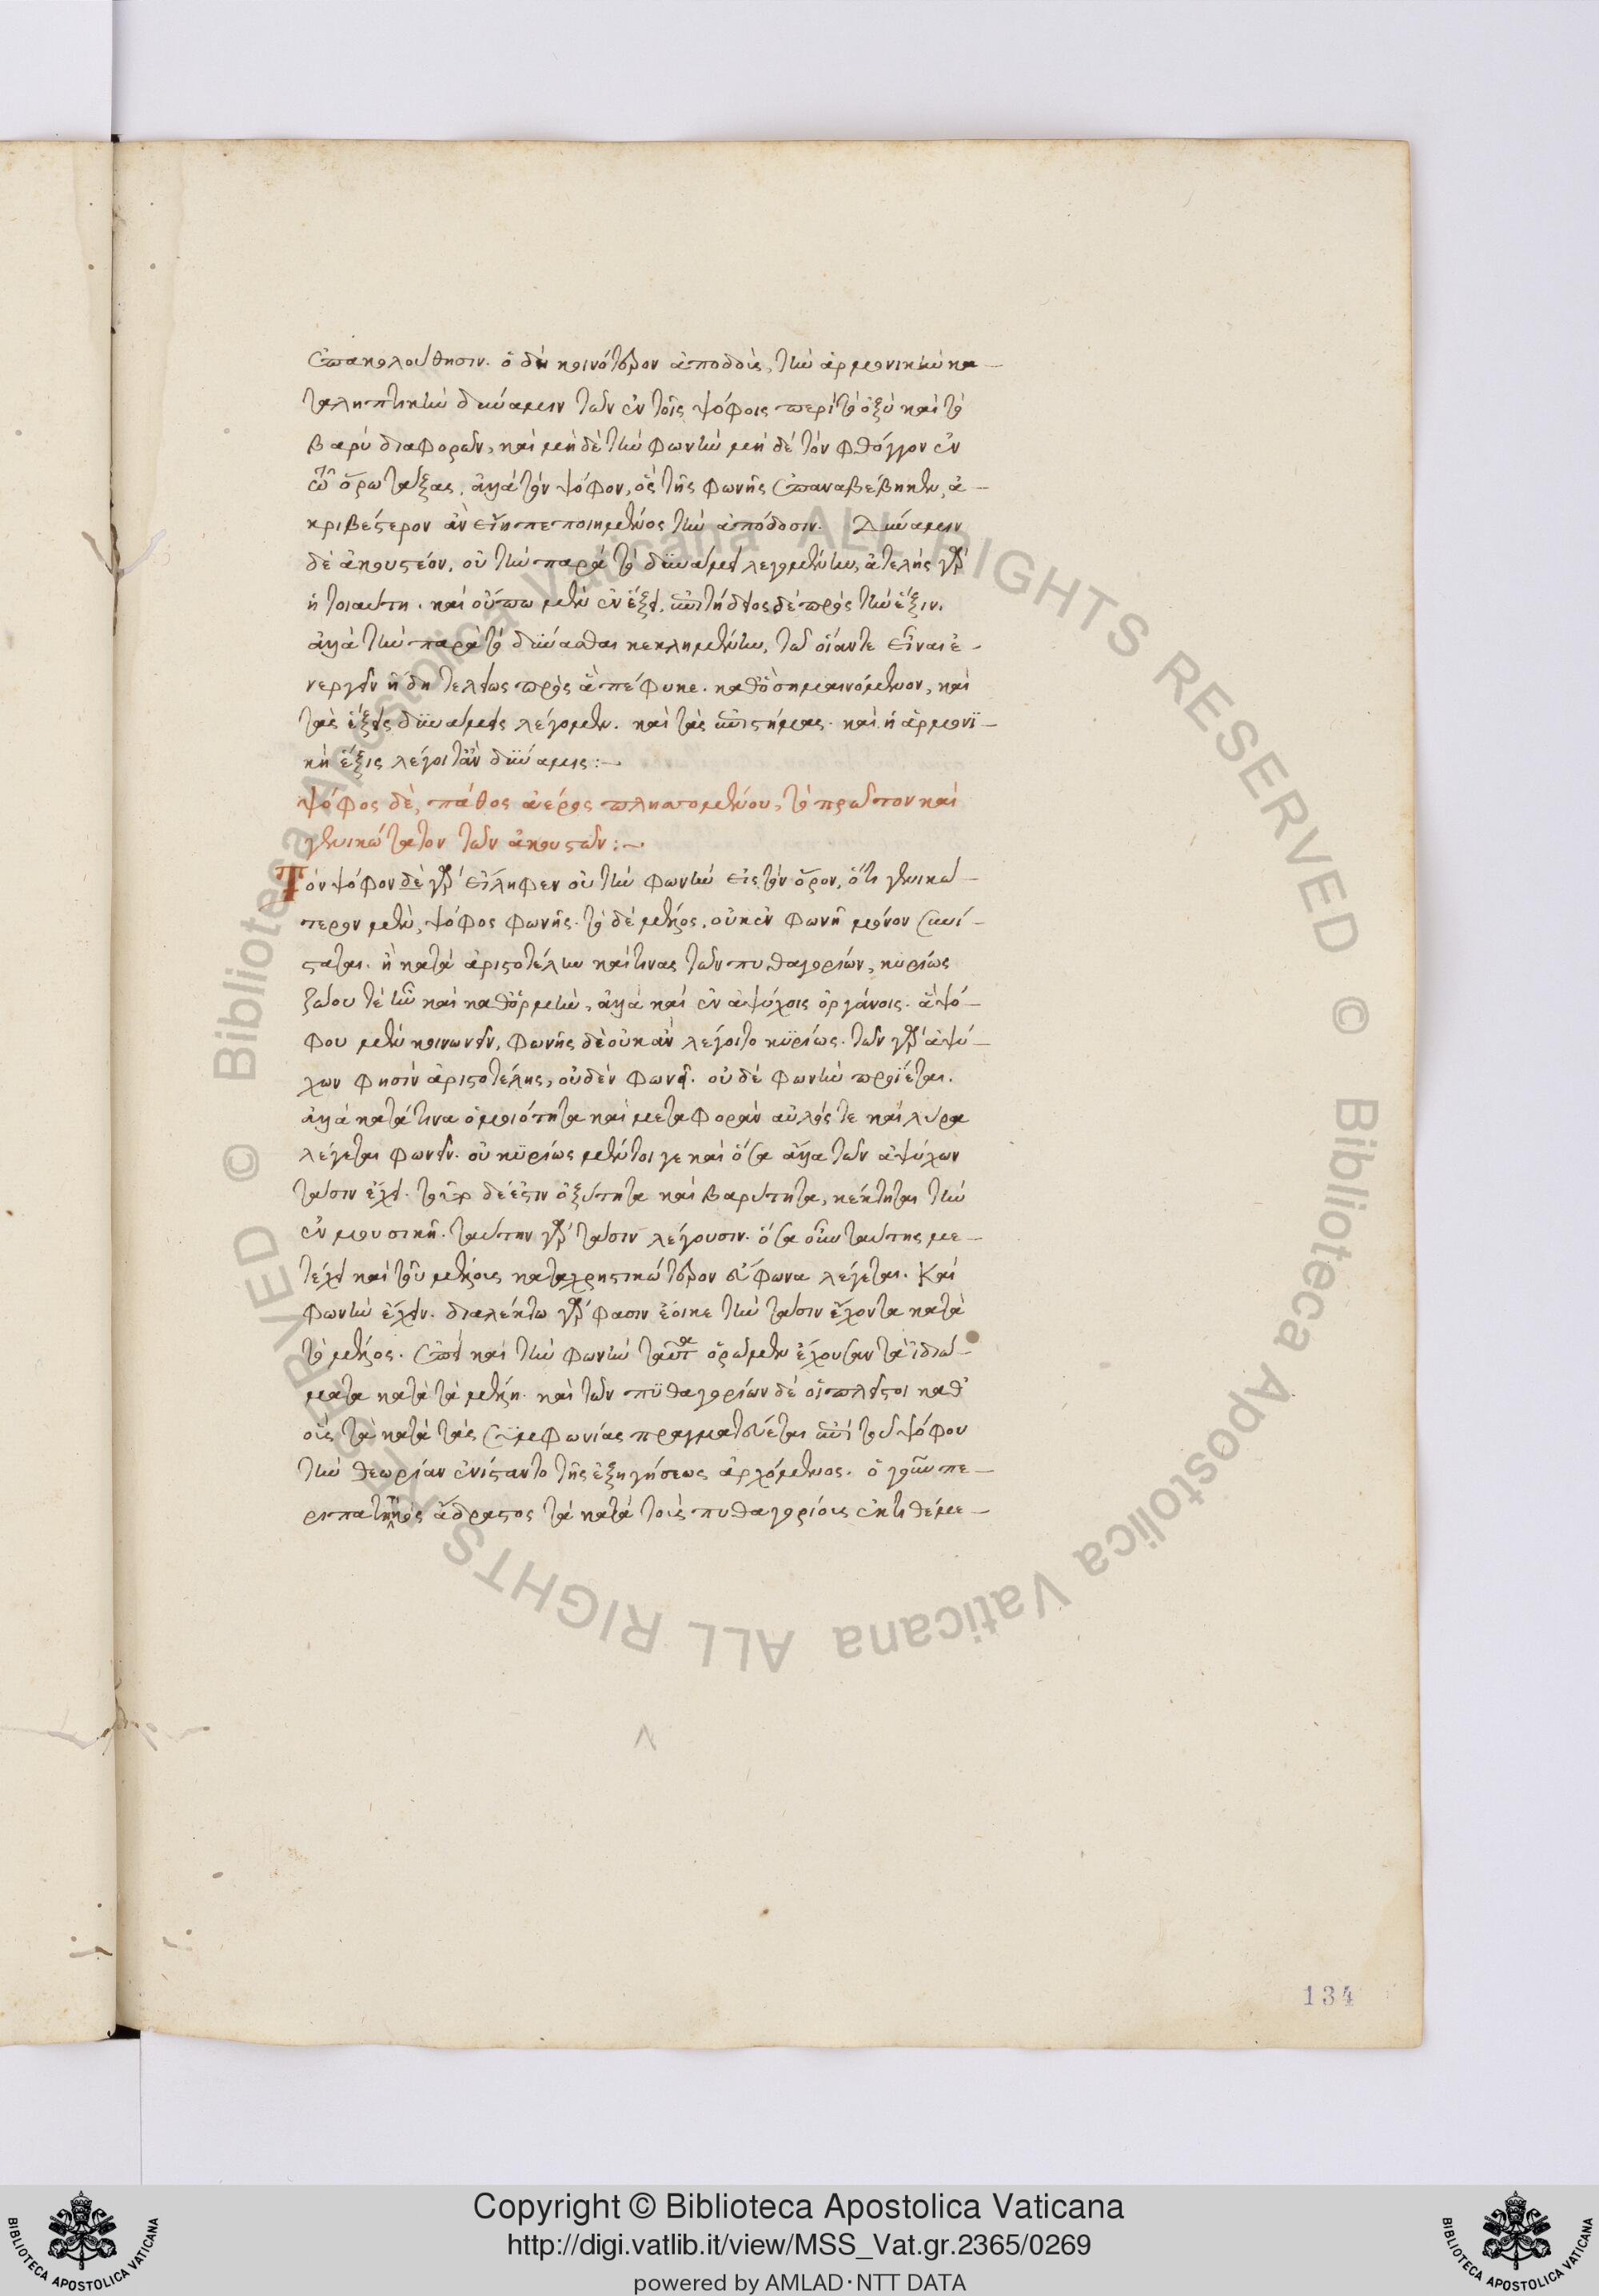 ἐπακολούθησιν. ὁ δὴ κοινότερον ἀποδοὺς, τὴν ἁρμονικὴν κα–
ταληπτικὴν δύναμιν τῶν ἐν τοῖς ψόφοις περὶ τὸ ὀξὺ καὶ τὸ
βαρὺ διαφορῶν, καὶ μὴ δὲ τὴν φωνὴν μὴ δὲ τὸν φθόγγον ἐν
τῶ ὅρω τάξας, ἀλλὰ τὸν ψόφον, ὃς τῆς φωνῆς ἐπαναβέβηκεν, ἀ–
κριβέστερον ἂν εἴη πεποιημένος τὴν ἀπόδοσιν. Δύναμιν
δὲ ἀκουστέον, οὐ τὴν παρὰ τὸ δυνάμει λεγομένην, ἀτελὴς γὰρ
ἡ τοιαύτη. καὶ οὔπω μὲν ἐν ἕξει, ἐπιτήδειος δὲ πρὸς τὴν ἕξιν.
ἀλλὰ τὴν παρὰ τὸ δύνασθαι κεκλημένην, τῶ οἵαντε εἶναι ἐ–
νεργεῖν ἤδη τελείως πρὸς ἃ πέφυκε. καθὃ σημαινόμενον, καὶ
τὰς ἕξεις δυνάμεις λέγομεν. καὶ τὰς ἐπιστήμας. καὶ ἡ ἁρμονϊ–
κὴ ἕξις λέγοιτἂν δύναμις:–
ψόφος δὲ, πάθος ἀέρος πλησσομένου, τὸ πρῶτον καὶ
γενικώτατον τῶν ἀκουστῶν:–
Τὸν ψόφον δὲ γὰρ εἴληφεν οὐ τὴν φωνὴν εἰς τὸν ὅρον, ὅτι γενικώ–
τερον μὲν, ψόφος φωνῆς. τὸ δὲ μέλος, οὐκ ἐν φωνῆ μόνον συνί–
σταται. ἣ κατὰ ἀριστοτέλην καί τινας τῶν πυθαγορίων, κυρίως
ζώου τέ ἦν καὶ καθὁρμὴν, ἀλλὰ καὶ ἐν ἀψύχοις ὀργάνοις. ἃ ψό–
φου μὲν κοινωνεῖν, φωνῆς δὲ οὐκἂν λέγοιτο κϋρίως. τῶν γὰρ ἀψύ–
χων φησὶν ἀριστοτέλης, οὐδὲν φωνεῖ. οὐδὲ φωνὴν προΐεται.
ἀλλὰ κατάτινα ὁμοιότητα καὶ μεταφορὰν αὐλός τε καὶ λύρα
λέγεται φωνεῖν. οὐ κϋρίως μέντοι γε καὶ ὅσα ἄλλα τῶν ἀψύχων
τάσιν ἔχει. τοῦτο δέ ἐστιν ὀξύτητα καὶ βαρύτητα, κέκτηται τὴν
ἐν μουσικῆ. ταύτην γὰρ τάσιν λέγουσιν. ὅσα οὖν ταύτης με–
τέχει καὶ τοῦ μέλους καταχρηστικώτερον εὔφωνα λέγεται. Καὶ
φωνὴν ἔχειν. διαλέκτω γὰρ φασιν ἔοικε τὴν τάσιν ἔχοντα κατὰ
τὸ μέλος. ἐπεὶ καὶ τὴν φωνὴν ταῦτα ὁρῶμεν ἔχουσαν τὰ ἰδιώ–
ματα κατὰ τὰ μέλη. καὶ τῶν πϋθαγορίων δὲ οἱ πλεῖστοι καθ'
οὓς τὰ κατὰ τὰς συμφωνίας πραγματεύεται ἐπὶ τοῦ ψόφου
τὴν θεωρίαν ἐνίσταντο τῆς ἐξηγήσεως ἀρχόμενος. ὁ γοῦν πε–
ριπατητικὸς ἄδραστος τὰ κατὰ τοὺς πυθαγορίους ἐκτιθέμε–
134
Copyright © Biblioteca Apostolica Vaticana
http://digi.vatlib.it/view/MSS_Vat.gr.2365/0269
powered by AMLAD·NTT DATA
BIBLIOTECA APOSTOLICA VATICANA
BIBLIOTECA APOSTOLICA VATICANA
© Biblioteca Apostolica Vaticana ALL RIGHTS RESERVED © Biblioteca Apostolica Vaticana ALL RIGHTS RESERVED